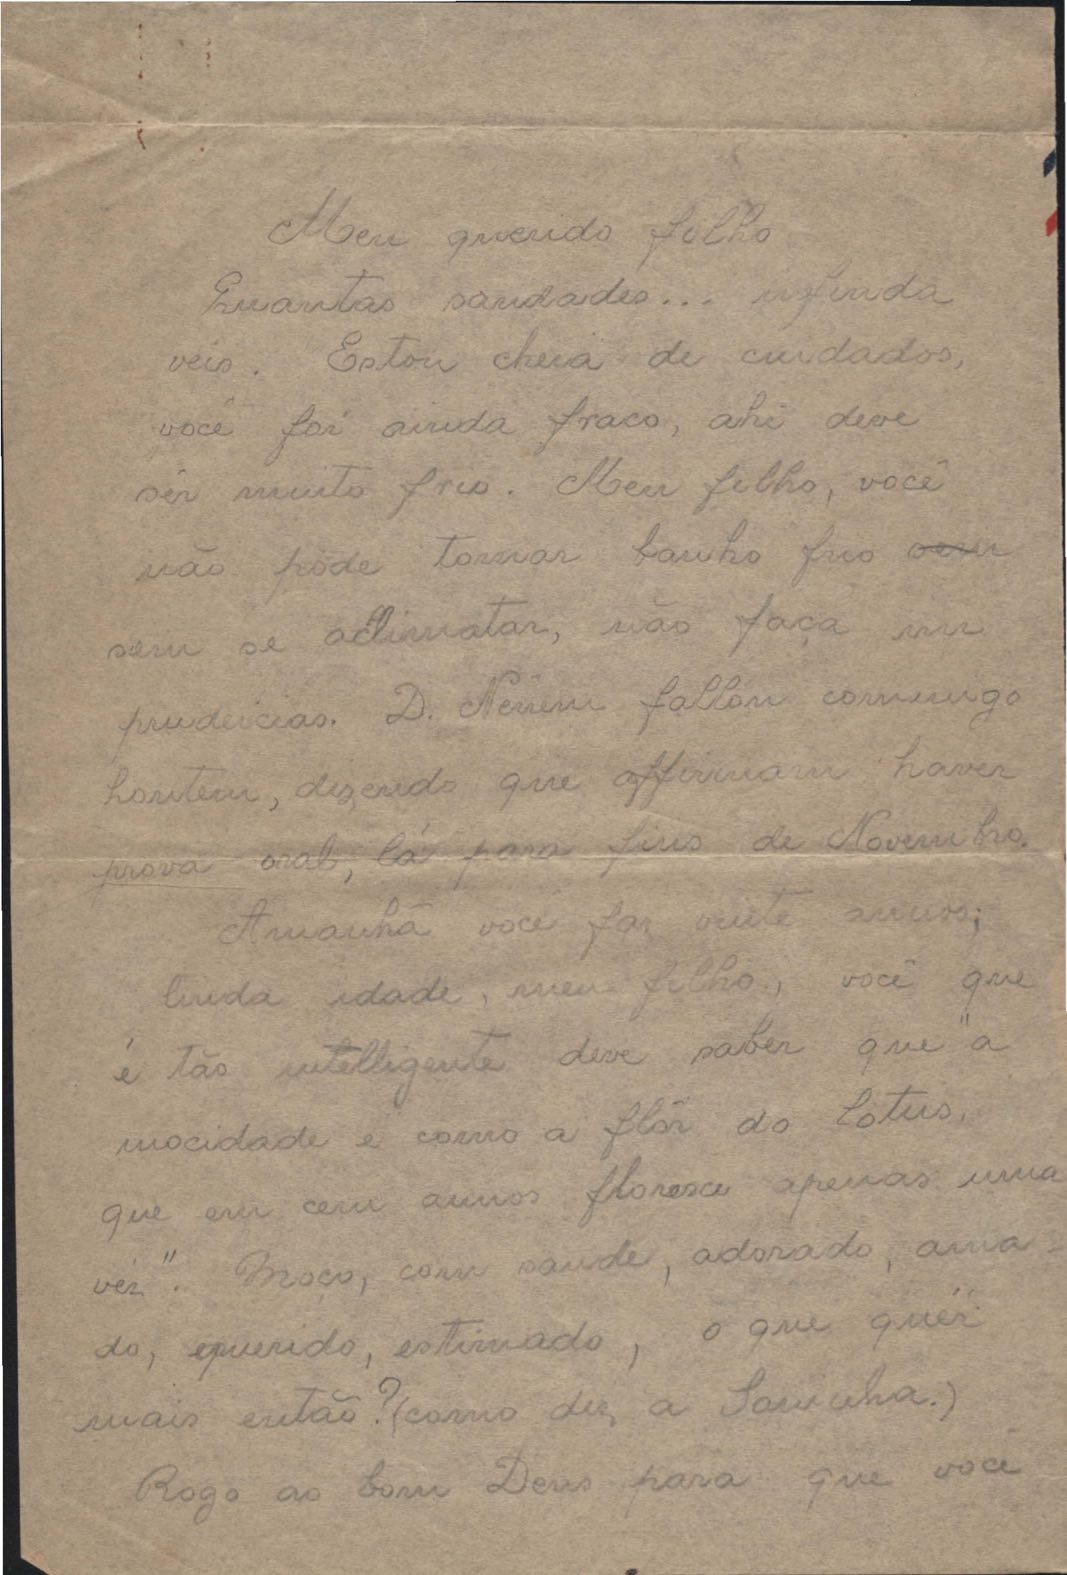 Meu querido filho
Quantas saudades... infinda
veis. Estou cheia de cuidados,
você foi ainda fraco, ahi deve
sêr muito frio. Meu filho, você
não póde tomar banho frio
sem se acclimatar, não faça im
prudencias. D. Neném fallou commigo
hontem, dizendo que affirmam haver
prova oral, lá para fins de Novembro.
Amanhã você faz vinte annos;
linda idade, meu filho, você que
é tão intelligente deve saber que "a
mocidade é como a flôr do Lotus,
que em cem annos floresce apenas uma
vêz". Moço, com saude, adorado, ama-
do, querido, estimado, o que quér
mais então? (como diz a Soninha.)
Rogo ao bom Deus para que você